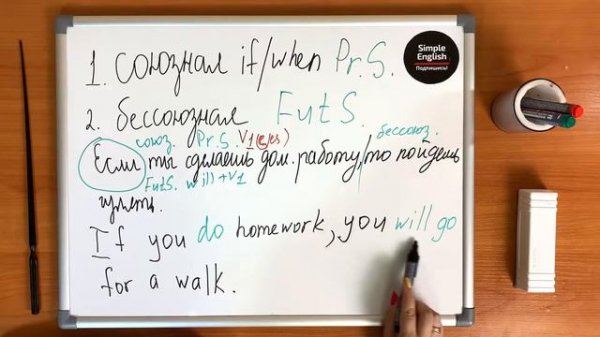 1. союзная if/when Pr.S.
Simple English
Подпишись!
2. бессоюзная Fut S.
союз. Pr.S. V1(s/es) бессоюз.
Если ты сделаешь дом. работу, то пойдёшь
Fut S. will + V1
гулять.
If you do homework, you will go
for a walk.